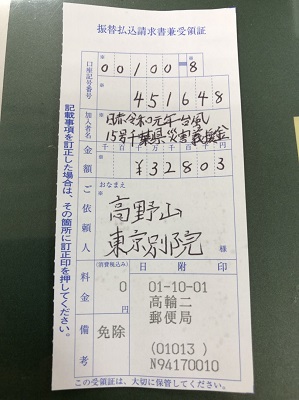 振替払込請求書兼受領証
口座記号番号
00100-8
451648
加入者名
日赤令和元年台風
15号千葉県災害義援金
金額
千 百 十 万 千 百 十 円
¥32803
ご依頼人
おなまえ
高野山
東京別院
様
料金
(消費税込み)
0
円
日附印
01-10-01
高輪二
郵便局
(01013)
N94170010
備考
免除
記載事項を訂正した場合は、その箇所に訂正印を押してください。
この受領証は、大切に保管してください。